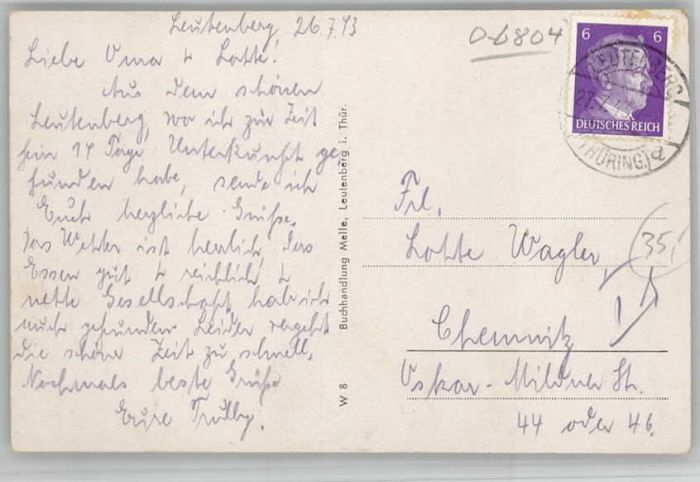 Leutenberg 26.7.43
Liebe Oma + Lotte!
Aus dem schönen
Leutenberg, wo ich zur Zeit
14 Tage Unterkunft ge-
funden habe, sende ich
Euch herzliche Grüße.
Das Wetter ist herrlich das
Essen gut + reichlich +
nette Gesellschaft hab ich
auch gefunden. Leider vergeht
die schöne Zeit zu schnell.
Nochmals beste Grüße
Eure
W 8 Buchhandlung Melle, Leutenberg i. Thür.
0-6804
6 6
DEUTSCHES REICH
LEUTENBERG
(THÜRING.)
Frl.
Lotte Wagler,
35,
Chemnitz
Oskar-Mildner St.
44 oder 46.